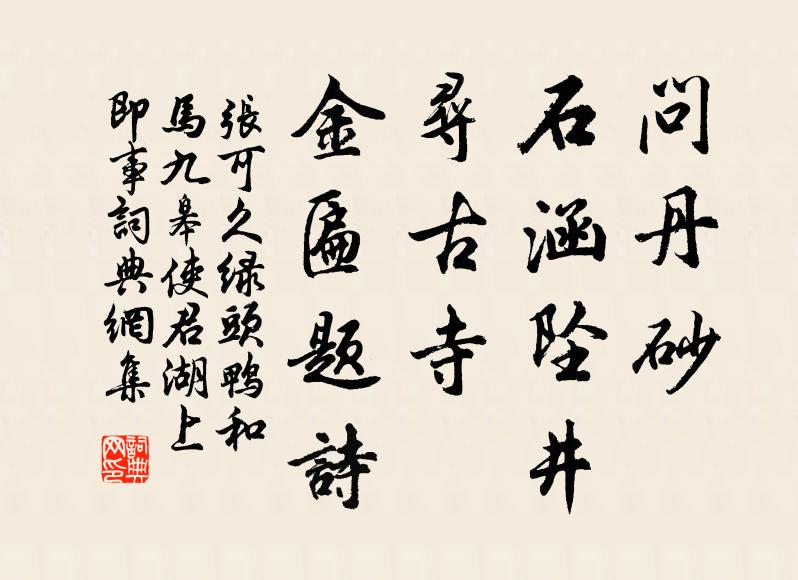 問丹砂
石涵坠井
尋古寺
金匾题詩
張可久绿頭鴨和
馬九皋使君湖上
即事詞典網集
詞典
网印